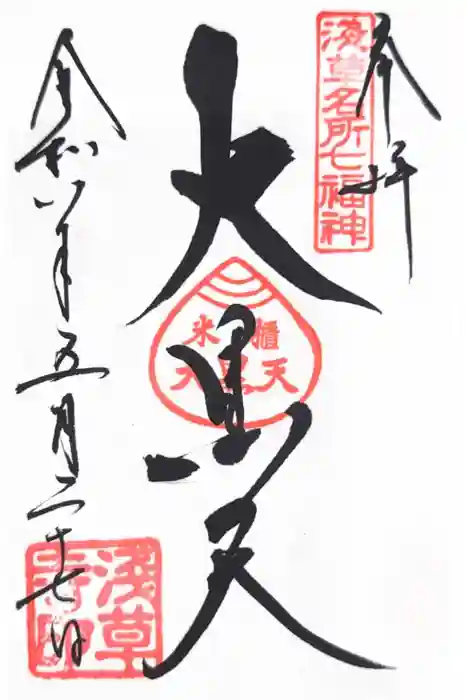 奉拝
浅草名所七福神
大黒天
米櫃
大黒天
令和八年五月二十七日
浅草
寺印